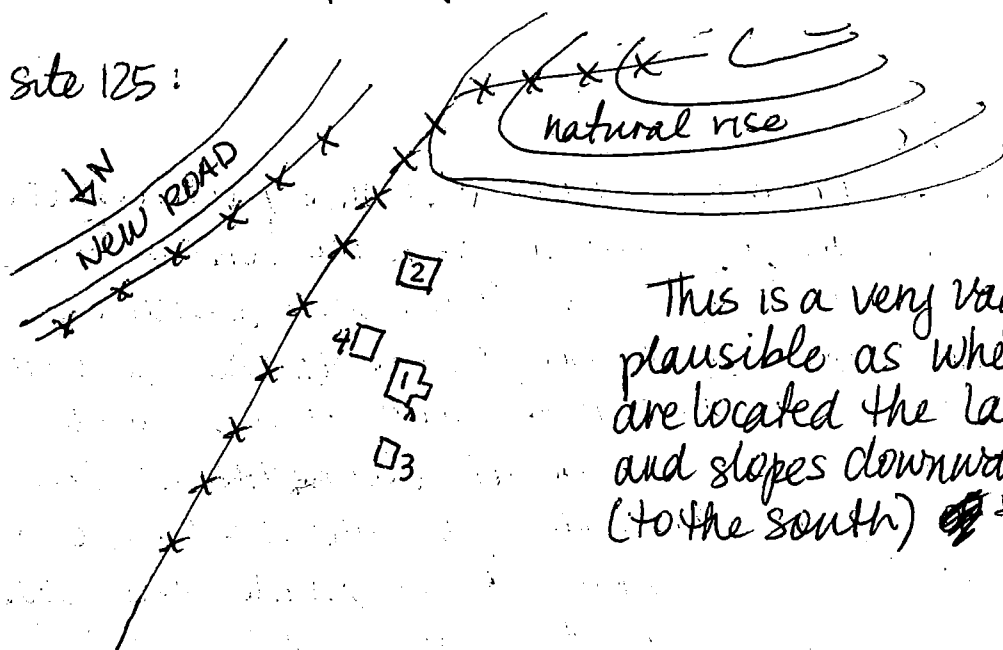 site 125:
N
NEW ROAD
natural rise
2
4
1
3
This is a very
plausible as
are located the
and slopes
(to the south)